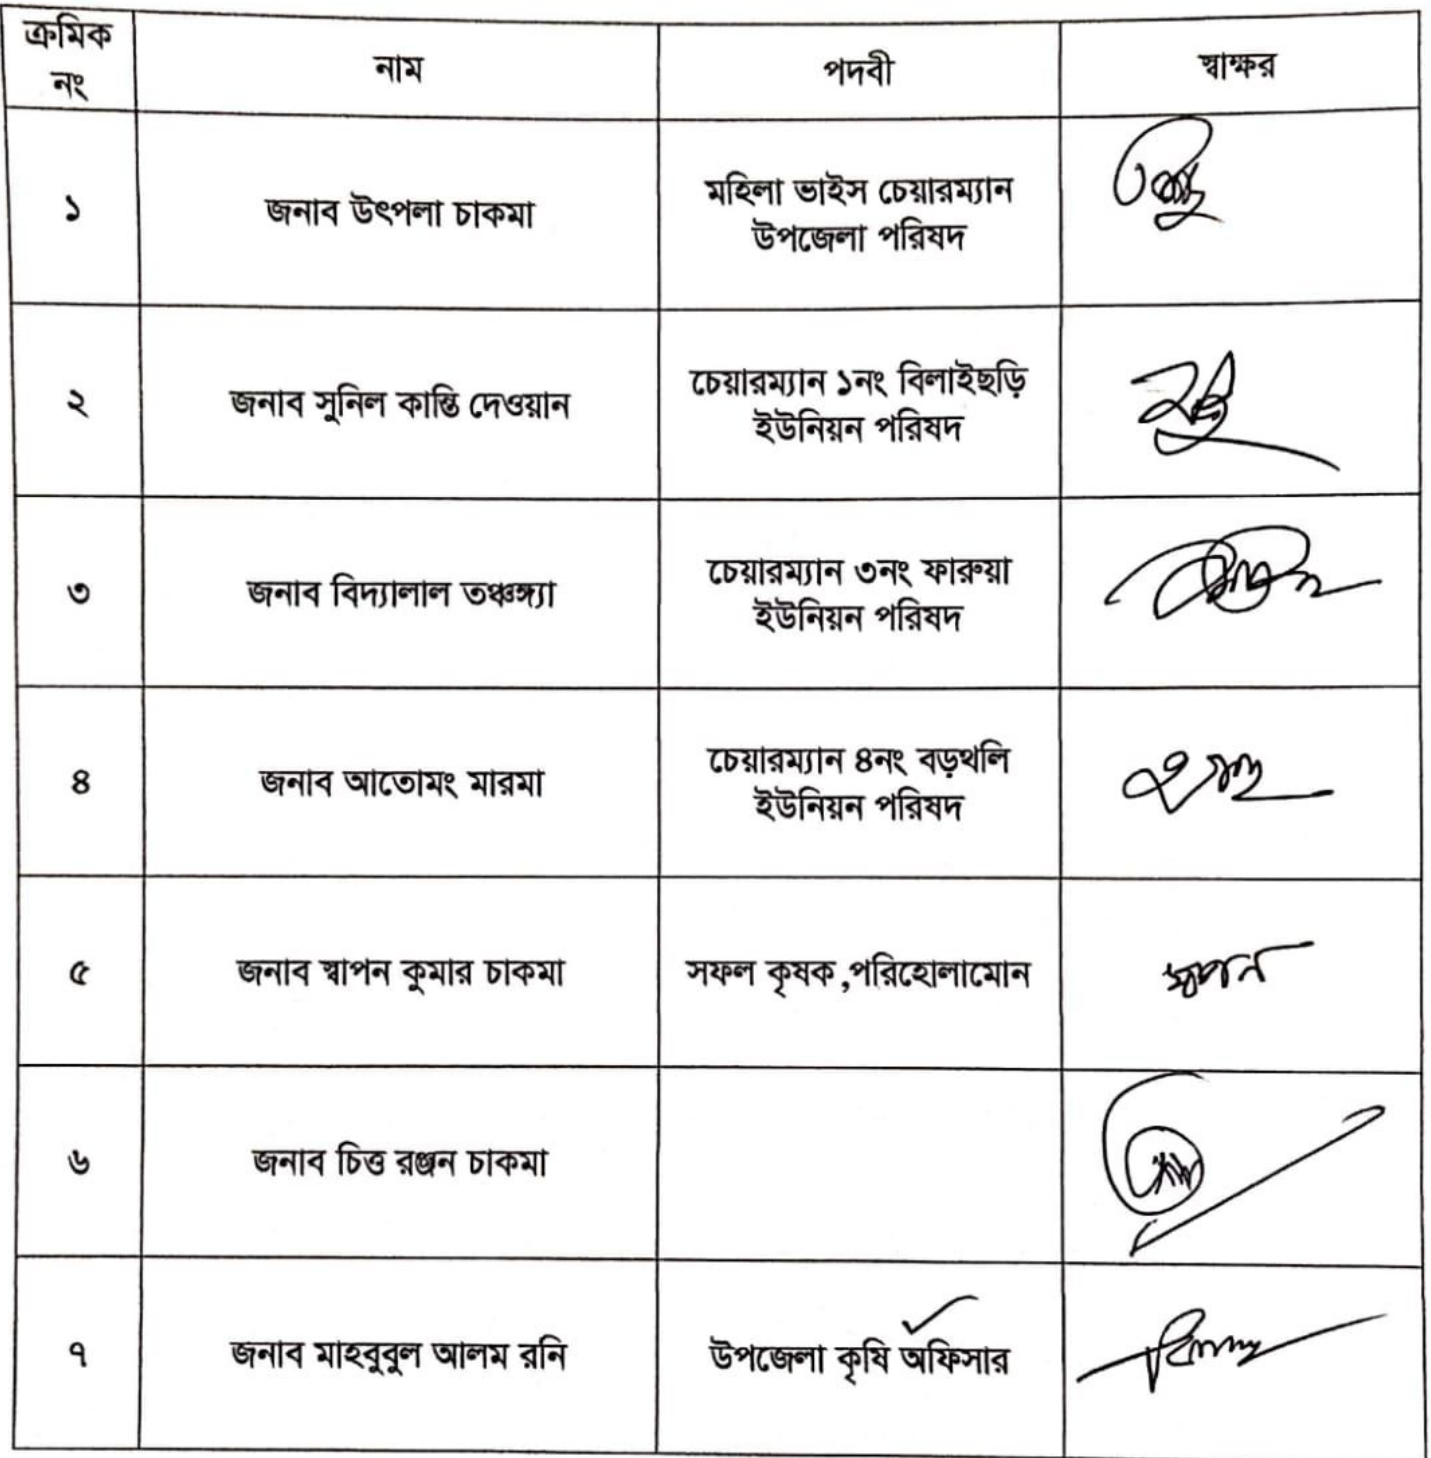 ক্রমিক
নং
নাম
পদবী
স্বাক্ষর
১
জনাব উৎপলা চাকমা
মহিলা ভাইস চেয়ারম্যান
উপজেলা পরিষদ
২
জনাব সুনিল কান্তি দেওয়ান
চেয়ারম্যান ১নং বিলাইছড়ি
ইউনিয়ন পরিষদ
৩
জনাব বিদ্যালাল তঞ্চঙ্গ্যা
চেয়ারম্যান ৩নং ফারুয়া
ইউনিয়ন পরিষদ
৪
জনাব আতোমং মারমা
চেয়ারম্যান ৪নং বড়থলি
ইউনিয়ন পরিষদ
৫
জনাব স্বাপন কুমার চাকমা
সফল কৃষক,পরিহোলামোন
স্বপন
৬
জনাব চিত্ত রঞ্জন চাকমা
৭
জনাব মাহবুবুল আলম রনি
উপজেলা কৃষি অফিসার